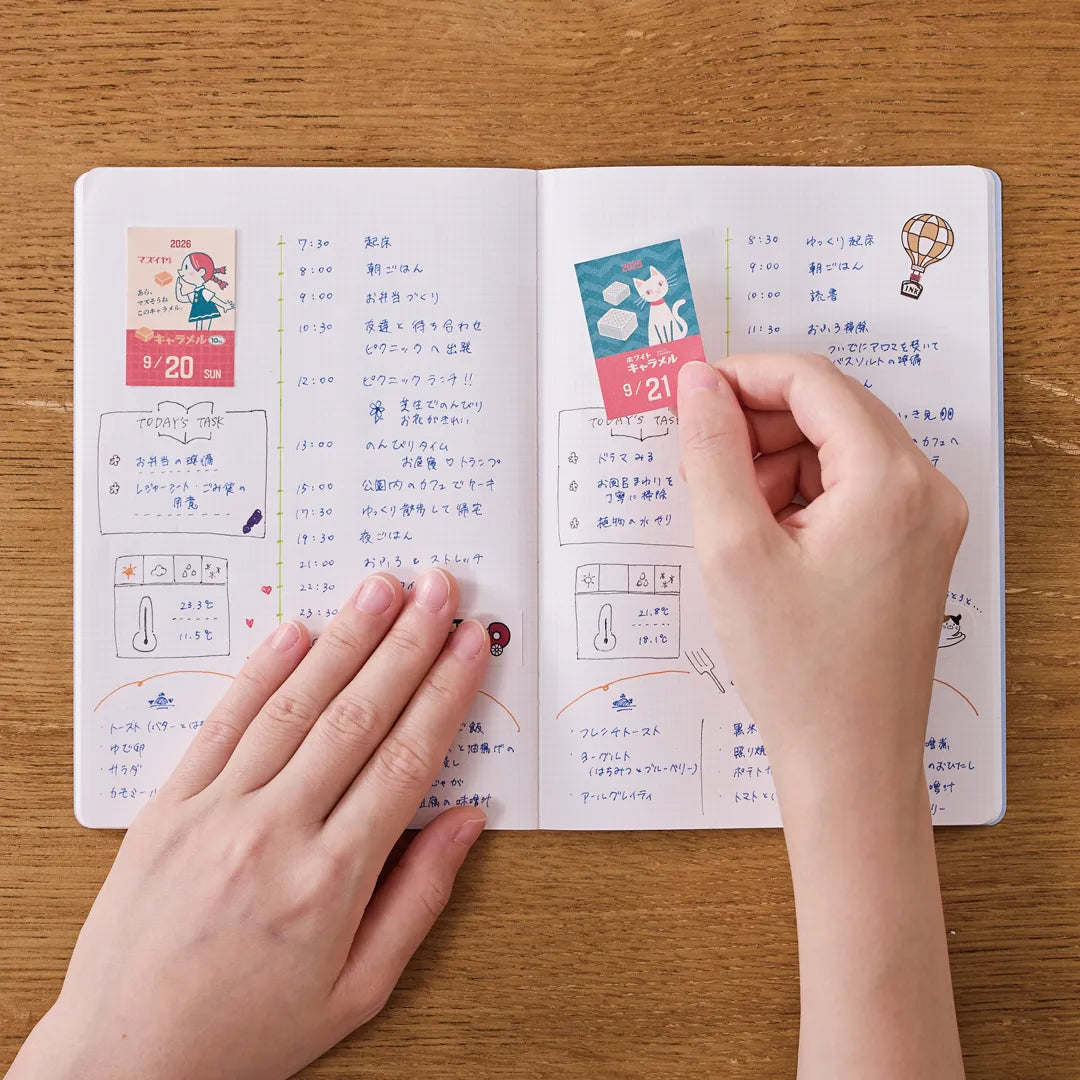 2026
マズイヤ!
あら、
マズそうね
このキャラメル。
キャラメル 10
9/20 SUN
TODAY'S TASK
お弁当の準備
レジャーシート・ごみ袋の
用意
23.3℃
11.5℃
7:30 起床
8:00 朝ごはん
9:00 お弁当づくり
10:30 友達と待ち合わせ
ピクニックへ出発
12:00 ピクニックランチ!!
芝生でのんびり
お花がきれい
13:00 のんびりタイム
お昼寝♡トランプ
15:00 公園内のカフェでケーキ
17:30 ゆっくり散歩して帰宅
19:30 夜ごはん
21:00 おふろ&ストレッチ
22:30
23:30
・トースト(バターとはち
・ゆで卵
・サラダ
・カモミール
ご飯
と油揚げの
じゃが
豆腐の味噌汁
2026
ホワイト
キャラメル
9/21
TODAY'S TASK
ドラマみる
お風呂まわりを
丁寧に掃除
植物の水やり
21.8℃
18.1℃
8:30 ゆっくり起床
9:00 朝ごはん
10:00 読書
11:30 おふろ掃除
ついでにアロマを焚いて
バスソルトの準備
ん
のカフェへ
INK
・フレンチトースト
・ヨーグルト
(はちみつとブルーベリー)
・アールグレイティ
・黒米
・照り焼
・ポテトサ
・トマトと
のおひたし
噌汁
リー